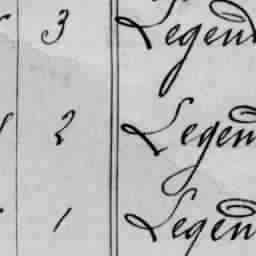 3 Legen
2 Legen
1 Legen